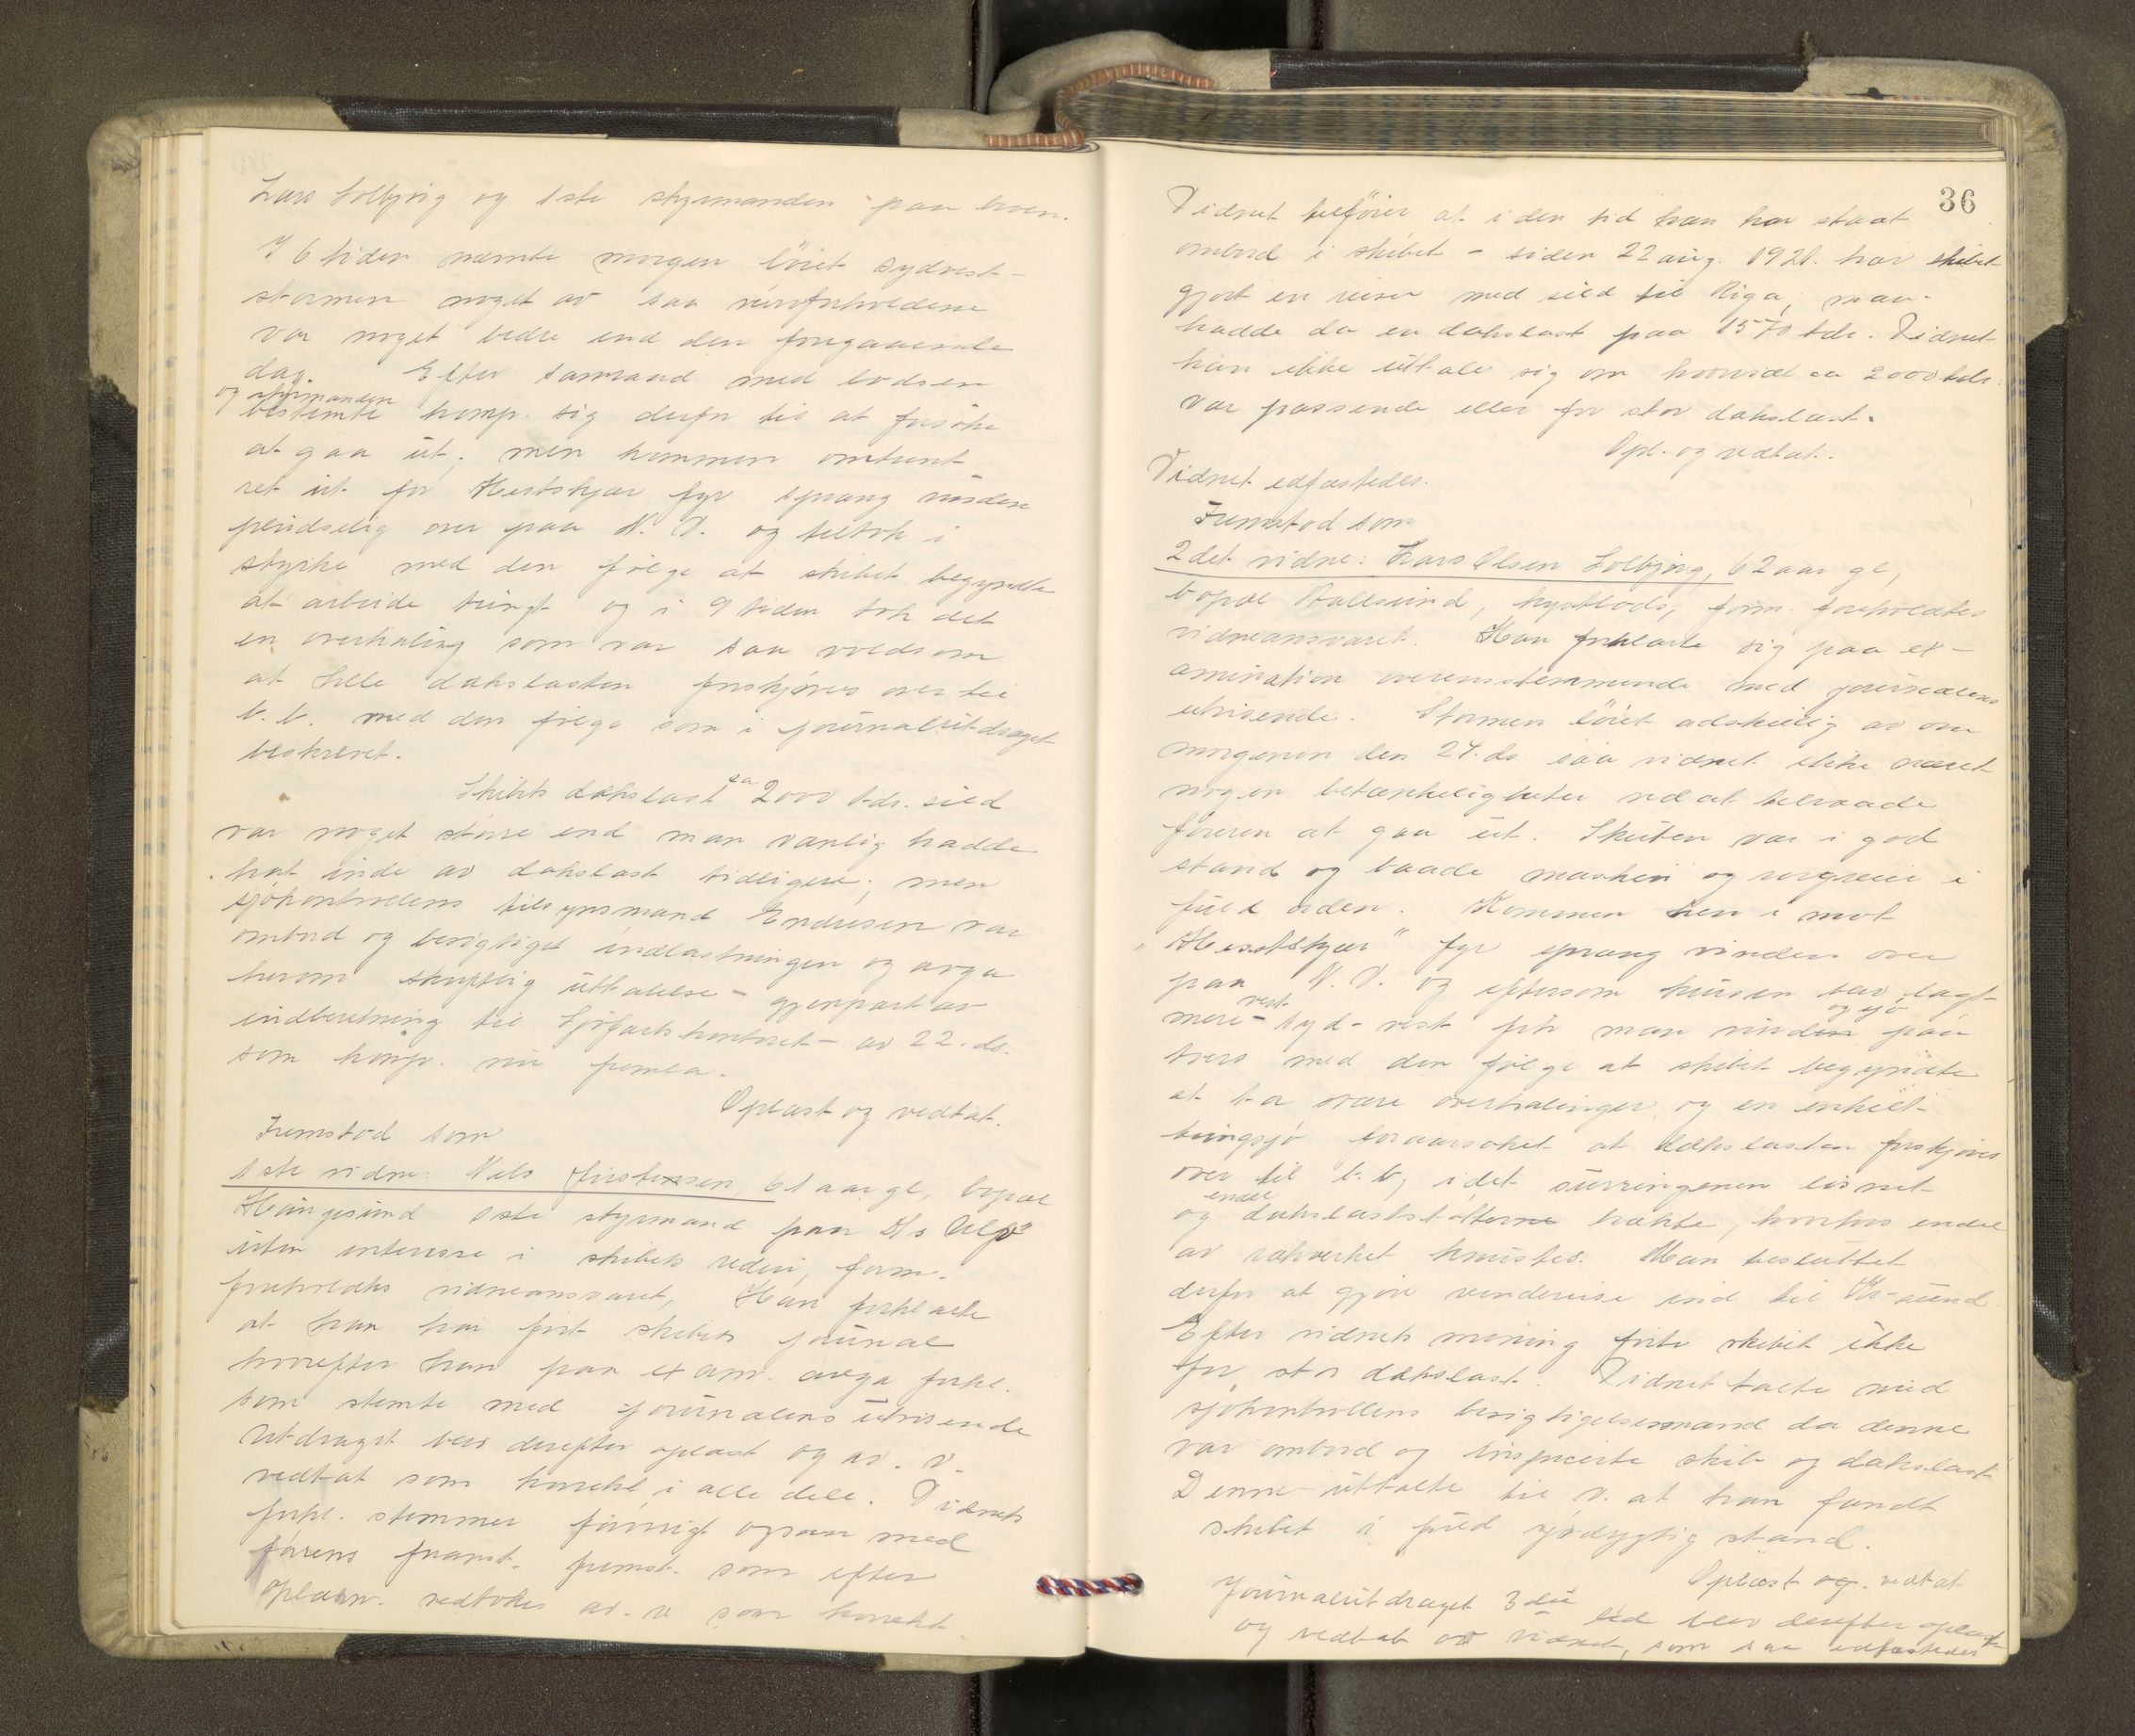 Lars Solbjørg og 1ste styrmanden paa broen.
I 6 tiden nævnte morgen løiet sydvest-
stormen noget av saa veirforholdene
var noget bedre end den foregaaende
dag. Efter samraad med lodsen
og styrmanden
bestemte komp. sig derfor til at forsøke
at gaa ut, men kommen omtrent
ret ut for Hestskjær fyr sprang vinden
pludselig over paa N. V. og tiltok i
styrke med den følge at skibet begyndte
at arbeide tungt og i 9 tiden tok det
en overhaling som var saa voldsom
at hele dækslasten forskjøves over til
b.b. med den følge som i journalutdraget
beskrevet.
Skibets dækslast ca 2000 tdr. sild
var noget større end man vanlig hadde
hat inde av dækslast tidligere, men
sjøkontrollens tilsynsmand Endresen var
ombord og besigtiget indlastningen og avga
herom skriftlig uttalelse - gjenpart av
indberetning til Sjøfartskontoret - av 22. ds.
som komp. nu fremla.
Oplæst og vedtat.
Fremstod som
1ste vidne: Nels Kristensen, 61 aar gl, bopæl
Haugesund 1ste styrmand paa D/s
uten interesse i skibets rederi, form.
foreholdtes vidneansvaret, Han forklarte
at han har ført skibets journal
hvorefter han paa exam. avga forkl.
som stemte med journalens utvisende
Utdraget blev derefter oplæst og av. v.
vedtat som korrekt i alle dele. Vidnets
forkl. stemmer forøvrigt ogsaa med
førerens fremst. som efter
oplæsn. vedtokes av. v. som korrekt.
36
Vidnet tilføier at i den tid han har staat
ombord i skibet - siden 22 aug. 1921. har skibet
gjort en reise med sild til Riga, man
hadde da en dækslast paa 1570 tdr. Vidnet
kan ikke uttale sig om hvorvidt ca 2000 tdr.
var passende eller for stor dækslast.
Opl. og vedtat.
Vidnet edfæstedes.
Fremstod som
2det vidne: Lars Olsen Solbjørg, 62 aar gl,
bopæl Kallesund, kystlods, form. foreholdtes
vidneansvaret. Han forklarte sig paa ex-
amination overensstemmende med journalens
utvisende. Stormen løiet adskillig av om
morgenen den 24. ds saa vidnet ikke næret
nogen betænkeligheter ved at tilraade
føreren at gaa ut. Skuten var i god
stand og baade maskin og
fuld orden. Kommen hen i mot
"Hestskjær" fyr sprang vinden over
paa N. V. og eftersom kursen blev lagt
mere vest- syd-vest fik man vinden og sjø paa
tvers med den følge at skibet begyndte
at ta svære overhalinger og en enkelt
tungsjø foraarsaket at dækslasten forskjøves
over til b.b, idet surringenen løsnet
og endel dækslaststøtterne brækte, hvorhos endel
av rækverket knustes. Man besluttet
derfor at gjøre vendereise ind til Kr-sund
Efter vidnets mening førte skibet ikke
for stor dækslast. Vidnet talte med
sjøkontrollens besigtigelsesmand da denne
var ombord og inspicerte skib og dækslast.
Denne uttalte til v. at han fandt
skibet i fuld sjødygtig stand.
Oplæst og vedtat
Journalutdraget 3die led blev derefter oplæst
og vedtat av vidnet, som saa edfæstedes